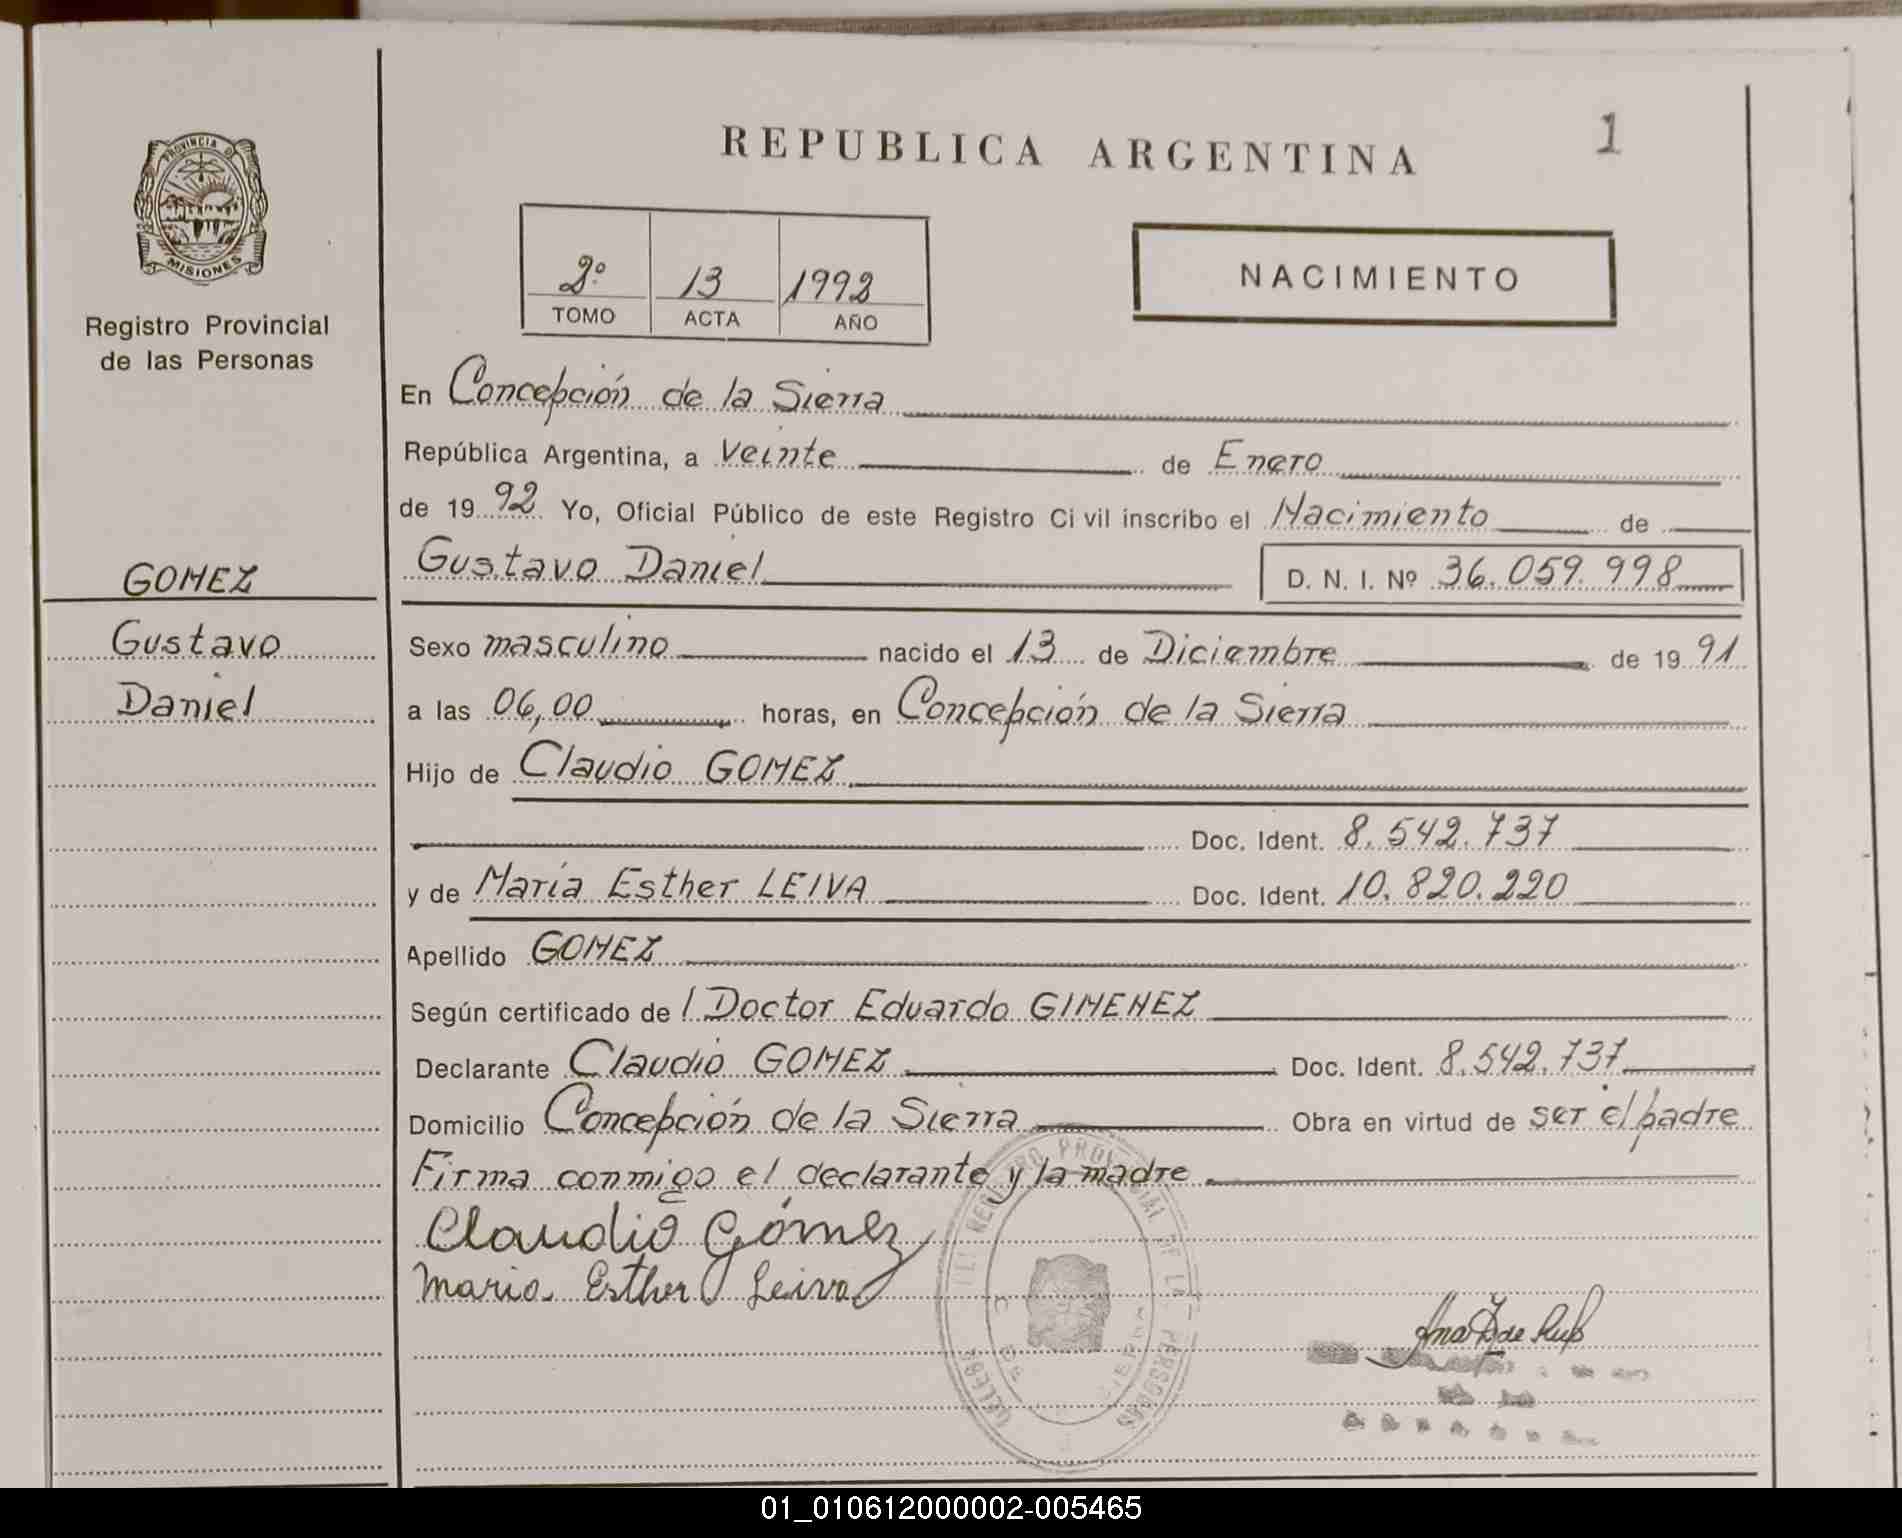 REPUBLICA ARGENTINA
1
PROVINCIA DE
MISIONES
Registro Provincial
de las Personas
2º 13 1992
TOMO ACTA AÑO
NACIMIENTO
En Concepción de la Sierra
República Argentina, a veinte de Enero
de 1992 Yo, Oficial Público de este Registro Ci vil inscribo el Nacimiento de
GOMEZ
Gustavo Daniel D. N. I. Nº 36.059.998
Gustavo
Sexo masculino nacido el 13 de Diciembre de 1991
Daniel
a las 06,00 horas, en Concepción de la Sierra
Hijo de Claudio GOMEZ
Doc. Ident. 8.542.737
y de María Esther LEIVA Doc. Ident. 10.820.220
Apellido GOMEZ
Según certificado de l Doctor Eduardo GIMENEZ
Declarante Claudio GOMEZ Doc. Ident. 8.542.737
Domicilio Concepción de la Sierra Obra en virtud de ser el padre
Firma conmigo el declarante y la madre
Claudio Gómez
Maria Esther Leiva
REGISTRO PROVINCIAL DE LAS PERSONAS
01_010612000002-005465